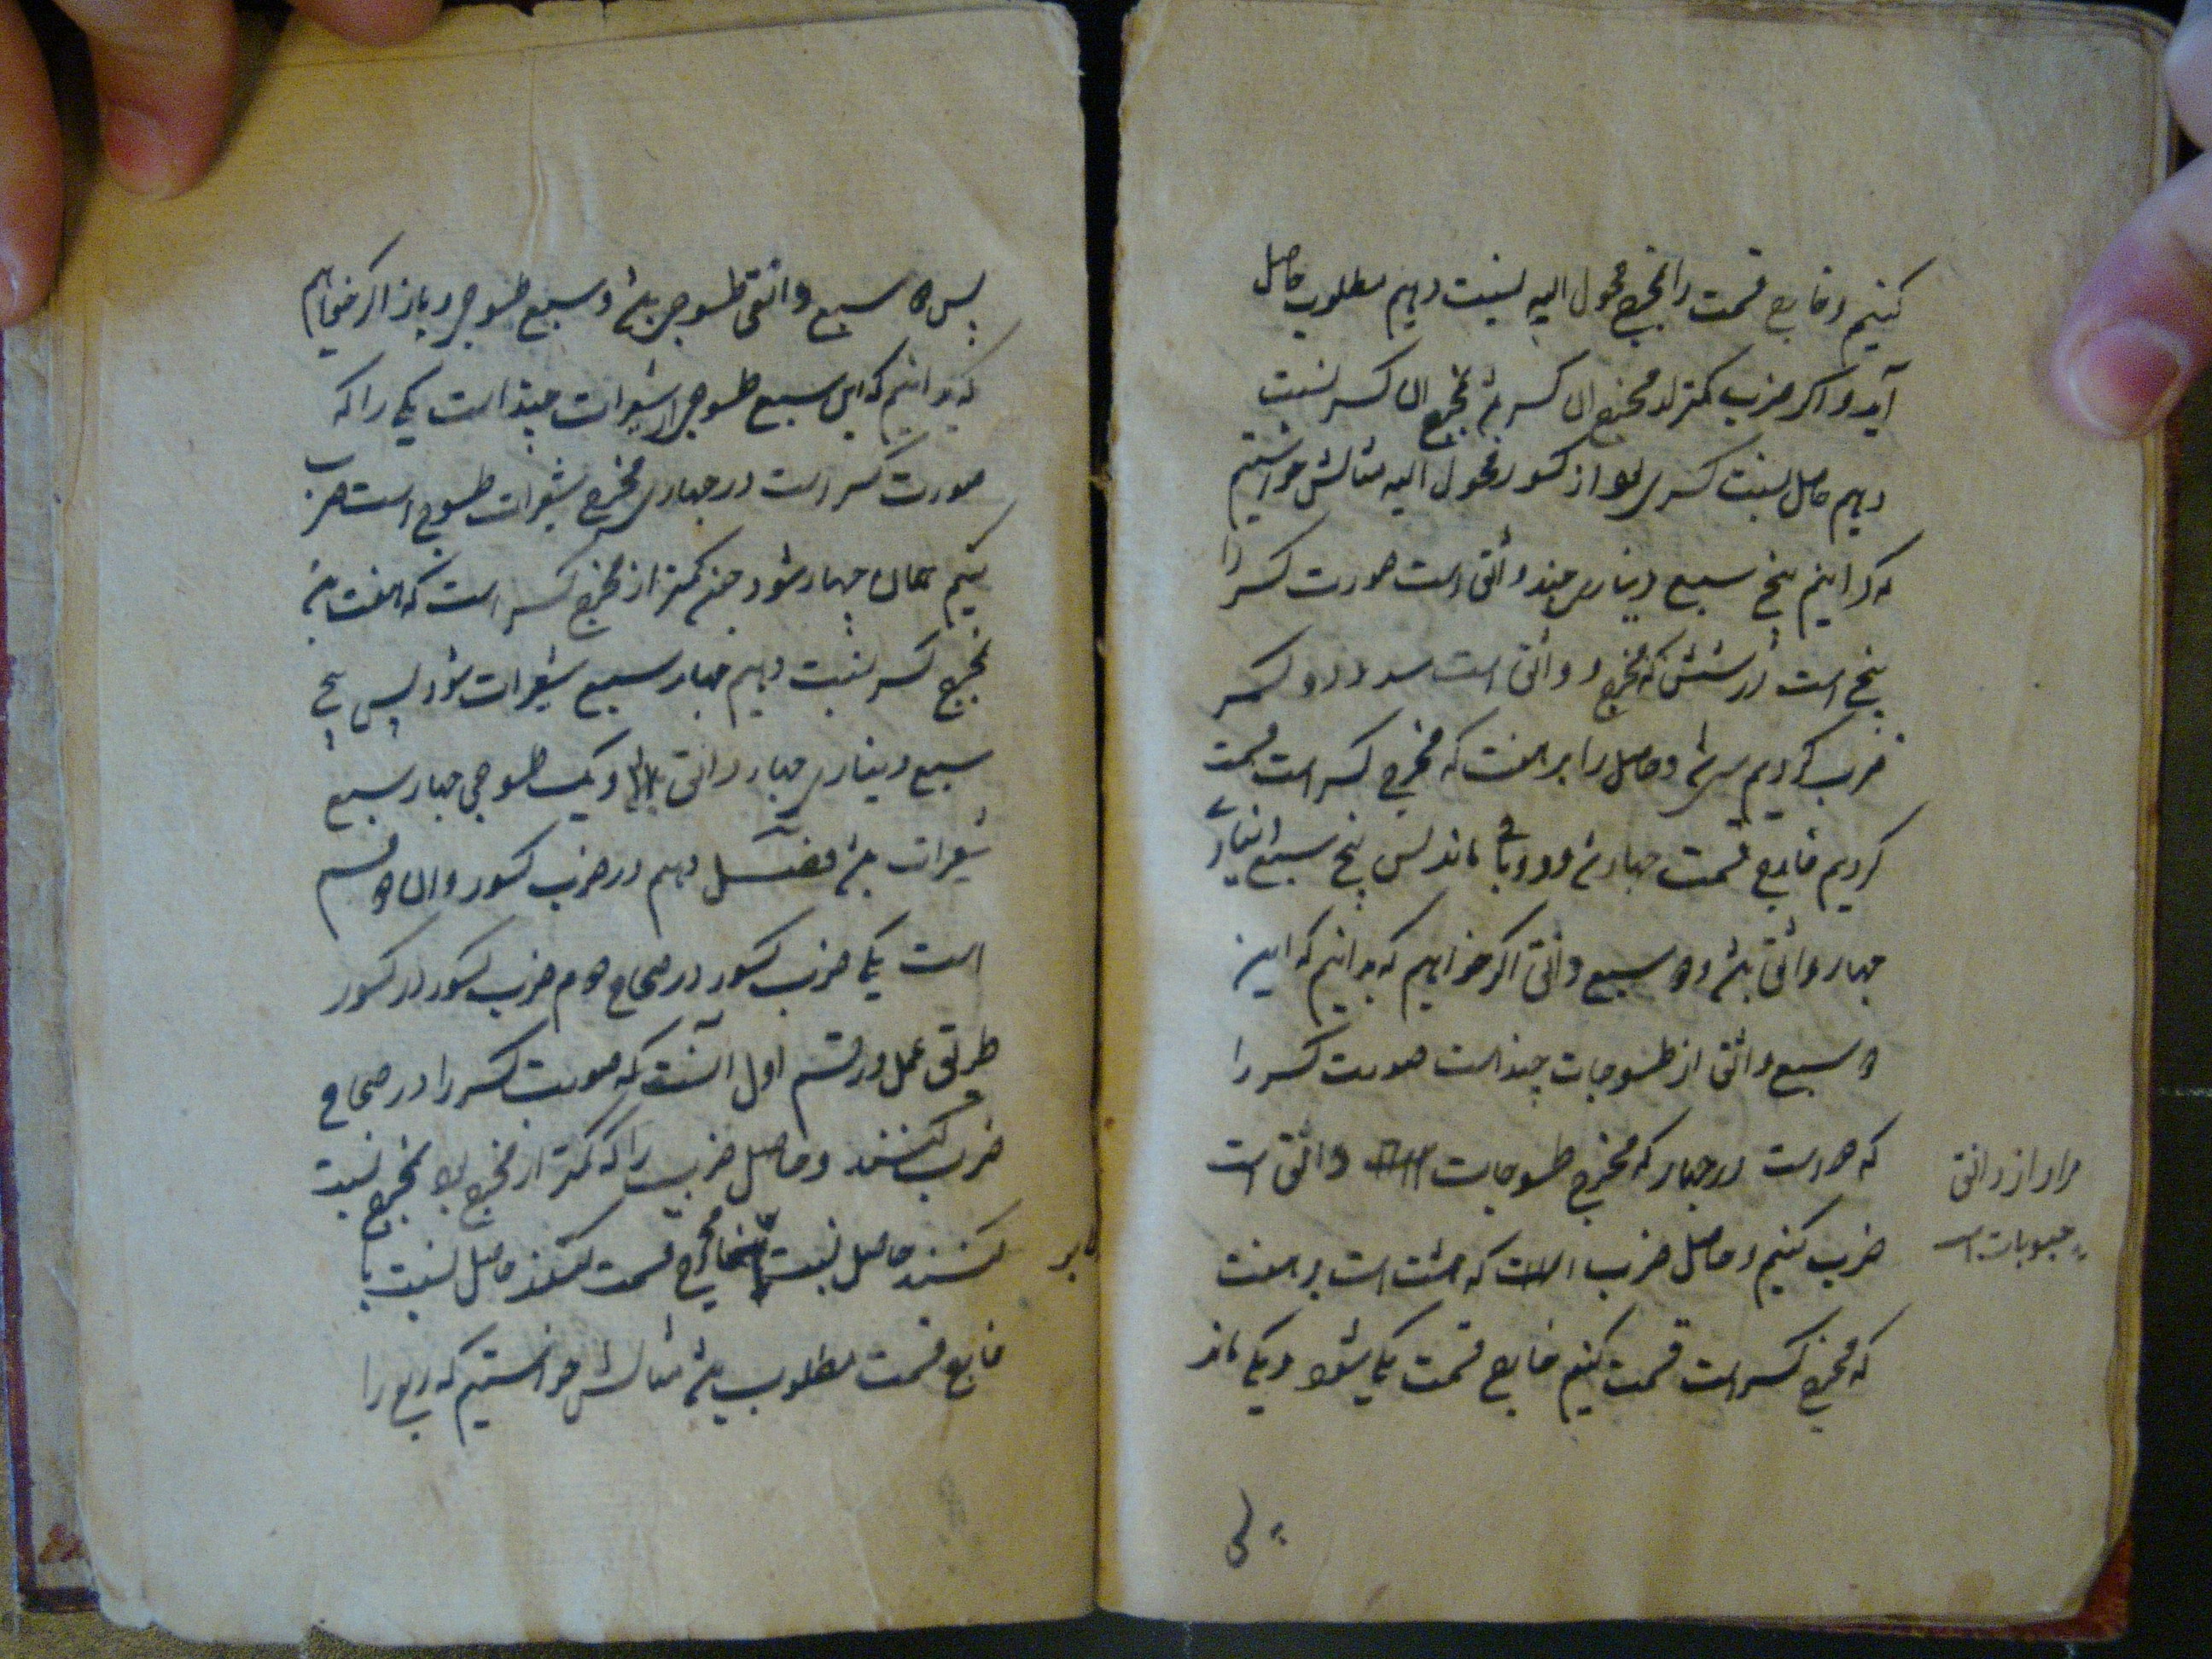 کنیم و خارج قسمت را بمخرج محول الیه نسبت دهیم مطلوب حاصل
آید و اگر ضرب کمتر از مخرج ان کسر باشد بمخرج ان کسر نسبت
دهیم حاصل نسبت کسری بود از کسور محول الیه مثالش خواستیم
که بدانیم پنج سبع دیناری چند دانق است صورت کسر را
پنج است در شش که مخرج دوانق است
ضرب کردیم سی شد و حاصل را بر هفت که مخرج کسر است قسمت
کردیم خارج قسمت چهار شد و دو باقی ماند پس پنج سبع دینار
چهار دانق باشد و دو سبع دانق اگر خواهیم که بدانیم که این
دو سبع دانق از طسوجات چند است صورت کسر را
که دو است در چهار که مخرج طسوجات دانق است
ضرب کنیم و حاصل ضرب که هشت است بر هفت
که مخرج کسر است قسمت کنیم خارج قسمت یکی شود و یکی ماند
مراد از دانق
حبوبات است
پس دو سبع دانق طسوجی باشد و سبع طسوجی و باز اگر خواهیم
که بدانیم که این سبع طسوجی از شعیرات چند است یکی را که
صورت کسر است در چهار که مخرج شعیرات طسوج است ضرب
کنیم همان چهار شود چون کمتر از مخرج کسر است که هفت باشد
بمخرج کسر نسبت دهیم چهار سبع شعیرات شود پس پنج
سبع دیناری چهار دانق و یک طسوجی چهار سبع
شعیرات باشد فصل دهم در ضرب کسور و ان دو قسم
است یکی ضرب کسور در صحاح دوم ضرب کسور در کسور
طریق عمل در قسم اول آنست که صورت کسر را در صحاح
ضرب کنند و حاصل ضرب را که کمتر از مخرج بود بمخرج نسبت
کنند حاصل نسبت مخرج قسمت کنند حاصل نسبت یا
یا بر
خارج قسمت مطلوب باشد مثالش خواستیم که ربع را